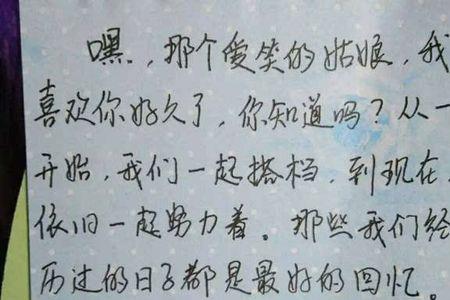 嘿，那个爱笑的姑娘，我
喜欢你好久了，你知道吗？从一
开始，我们一起搭档，到现在，
依旧一起努力着。那些我们经
历过的日子都是最好的回忆。